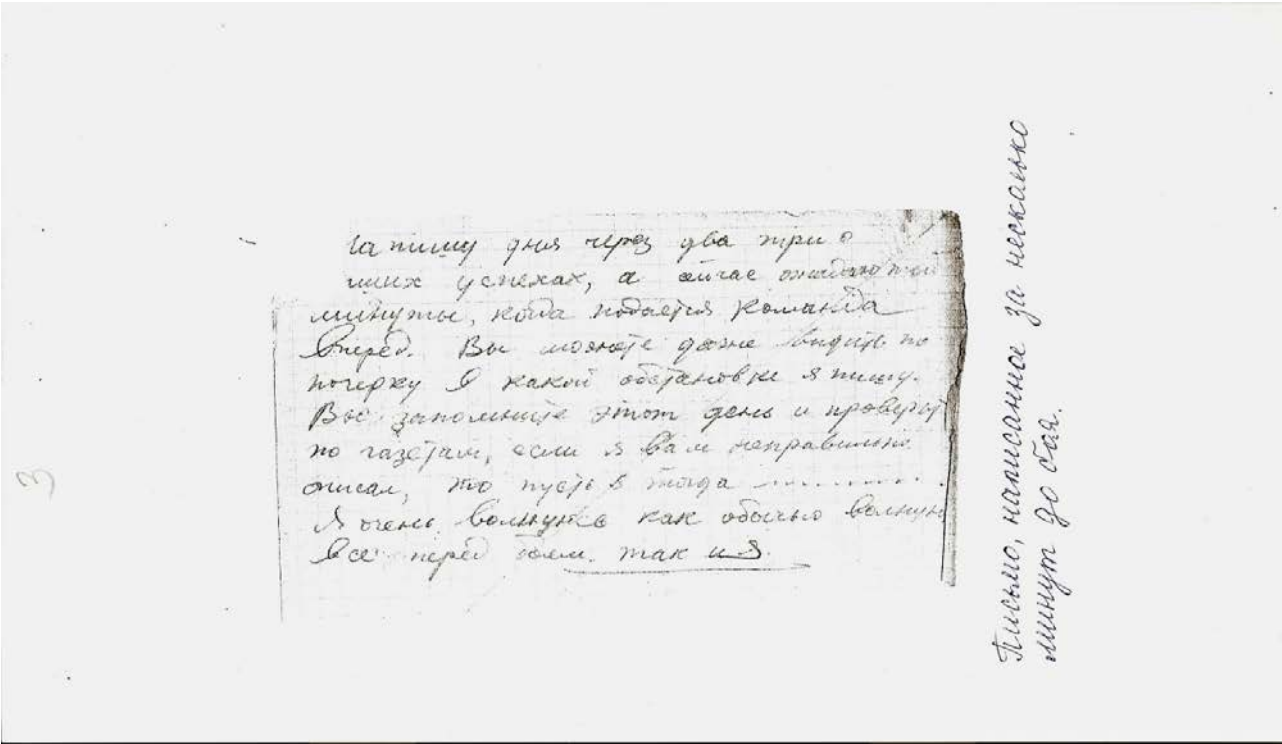 напишу дня через два три о
ших успехах, а сичас ожидаю той
минуты, когда подастся команда
Вперёд. Вы можете даже видить по
почерку в какой обстановке я пишу.
Вы запомните этот день и проверьте
по газетам, если я вам неправильно
описал, то пусть я тогда ............
Я очень волнуюсь как обычно волнуют
все перед боем так и я.
Письмо, написанное за несколько
минут до боя.
3